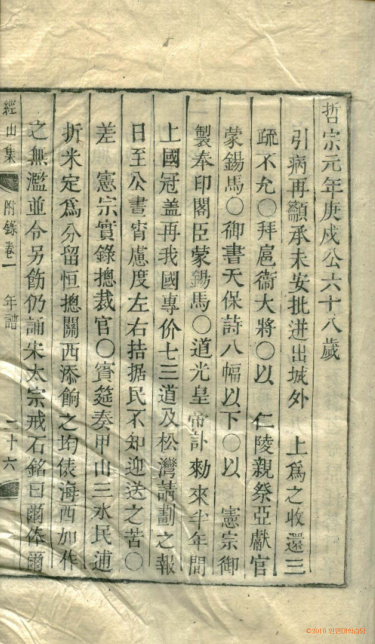 哲宗元年庚戌公六十八歲
引病再籲承未安批迸出城外 上爲之收還三
疏不允○拜扈衞大將○以 仁陵親祭亞獻官
蒙錫馬○御書天保詩八幅以下○以 憲宗御
製奉印閣臣蒙錫馬○道光皇帝訃勅來半年間
上國冠盖再我國專价七三道及松灣請劃之報
日至公晝宵慮度左右拮据民不知迎送之苦○
差 憲宗實錄摠裁官○賓筵奏甲山三水民逋
折米定爲分留恒摠關西添餉之均俵海西加作
之無濫並令另飭仍誦宋太宗戒石銘曰爾俸爾
經山集 附錄卷一 年譜 二十六